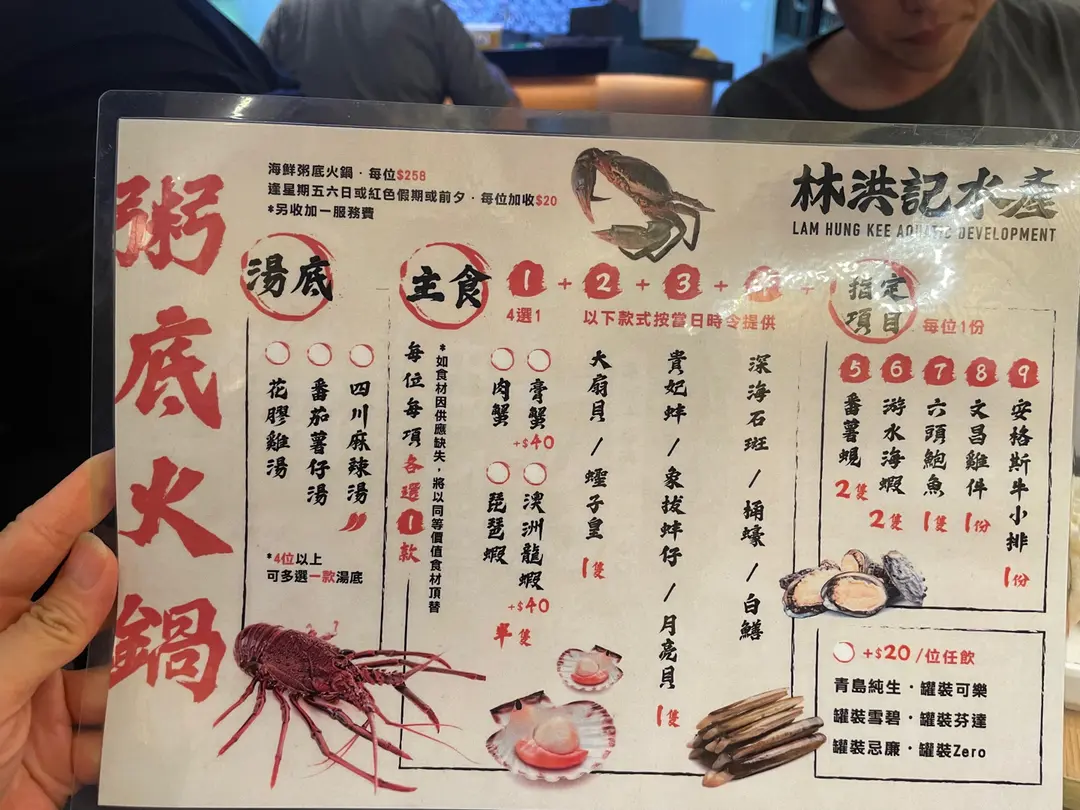 粥底火鍋
海鮮粥底火鍋·每位$258
逢星期五六日或紅色假期或前夕·每位加收$20
*另收加一服務費
林洪記水產
LAM HUNG KEE AQUATIC DEVELOPMENT
湯底
花膠雞湯
番茄薯仔湯
四川麻辣湯
*4位以上
可多選一款湯底
主食
1 + 2 + 3 +
4選1
以下款式按當日時令提供
每位每項各選1款
*如食材因供應缺失,將以同等價值食材頂替
肉蟹
膏蟹
+$40
琵琶蝦
澳洲龍蝦
+$40
半隻
大扇貝/蟶子皇
1隻
貴妃蚌/象拔蚌仔/月亮貝
1隻
深海石斑/桶蠔/白鱔
指定項目
每位1份
5
番薯蜆
2隻
6
游水海蝦
2隻
7
六頭鮑魚
1隻
8
文昌雞件
1份
9
安格斯牛小排
1份
+$20/位任飲
青島純生·罐裝可樂
罐裝雪碧·罐裝芬達
罐裝忌廉·罐裝Zero